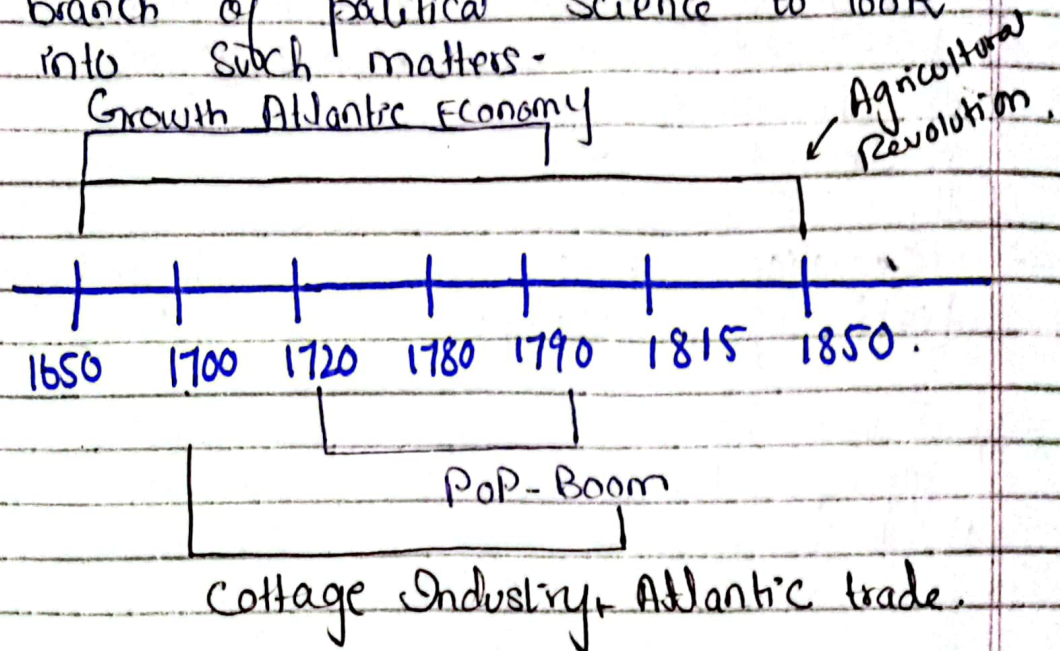 branch of political science to look
into such matters-
Growth Atlantic Economy
Agricultural
Revolution.
1650 1700 1720 1780 1790 1815 1850.
POP-Boom
Cottage Industry, Atlantic trade.